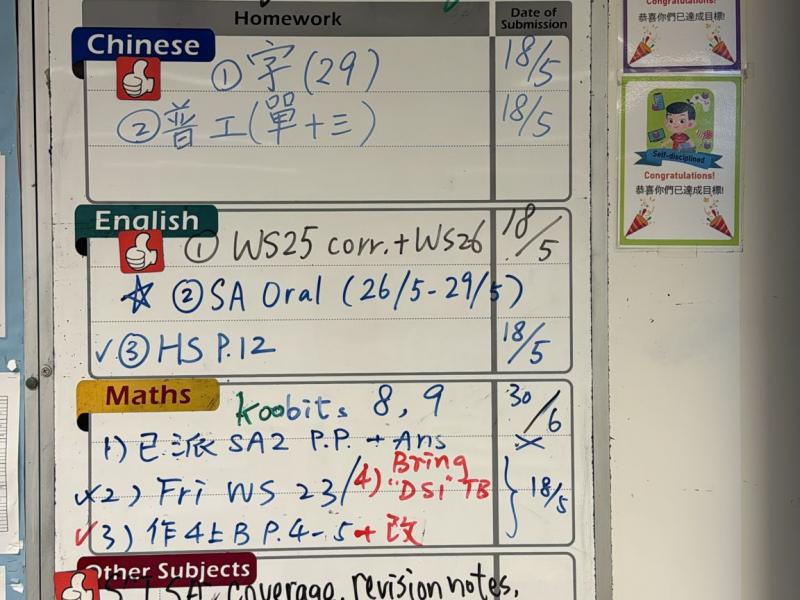 Homework
Date of Submission
Chinese
① 字(29) 18/5
② 普工(單十三) 18/5
English
① WS25 corr.+WS26 18/5
☆ ② SA Oral (26/5-29/5)
✓③ HS P.12 18/5
Maths
koobits 8, 9 30/6
1) 已派 SA2 P.P. + Ans
2) Fri WS 23/4) Bring "DSI" TB
✓3) 作4上B P.4-5+改 18/5
Other Subjects
SA coverage, revision notes,
Congratulations!
恭喜你們已達成目標!
Self-disciplined
Congratulations!
恭喜你們已達成目標!